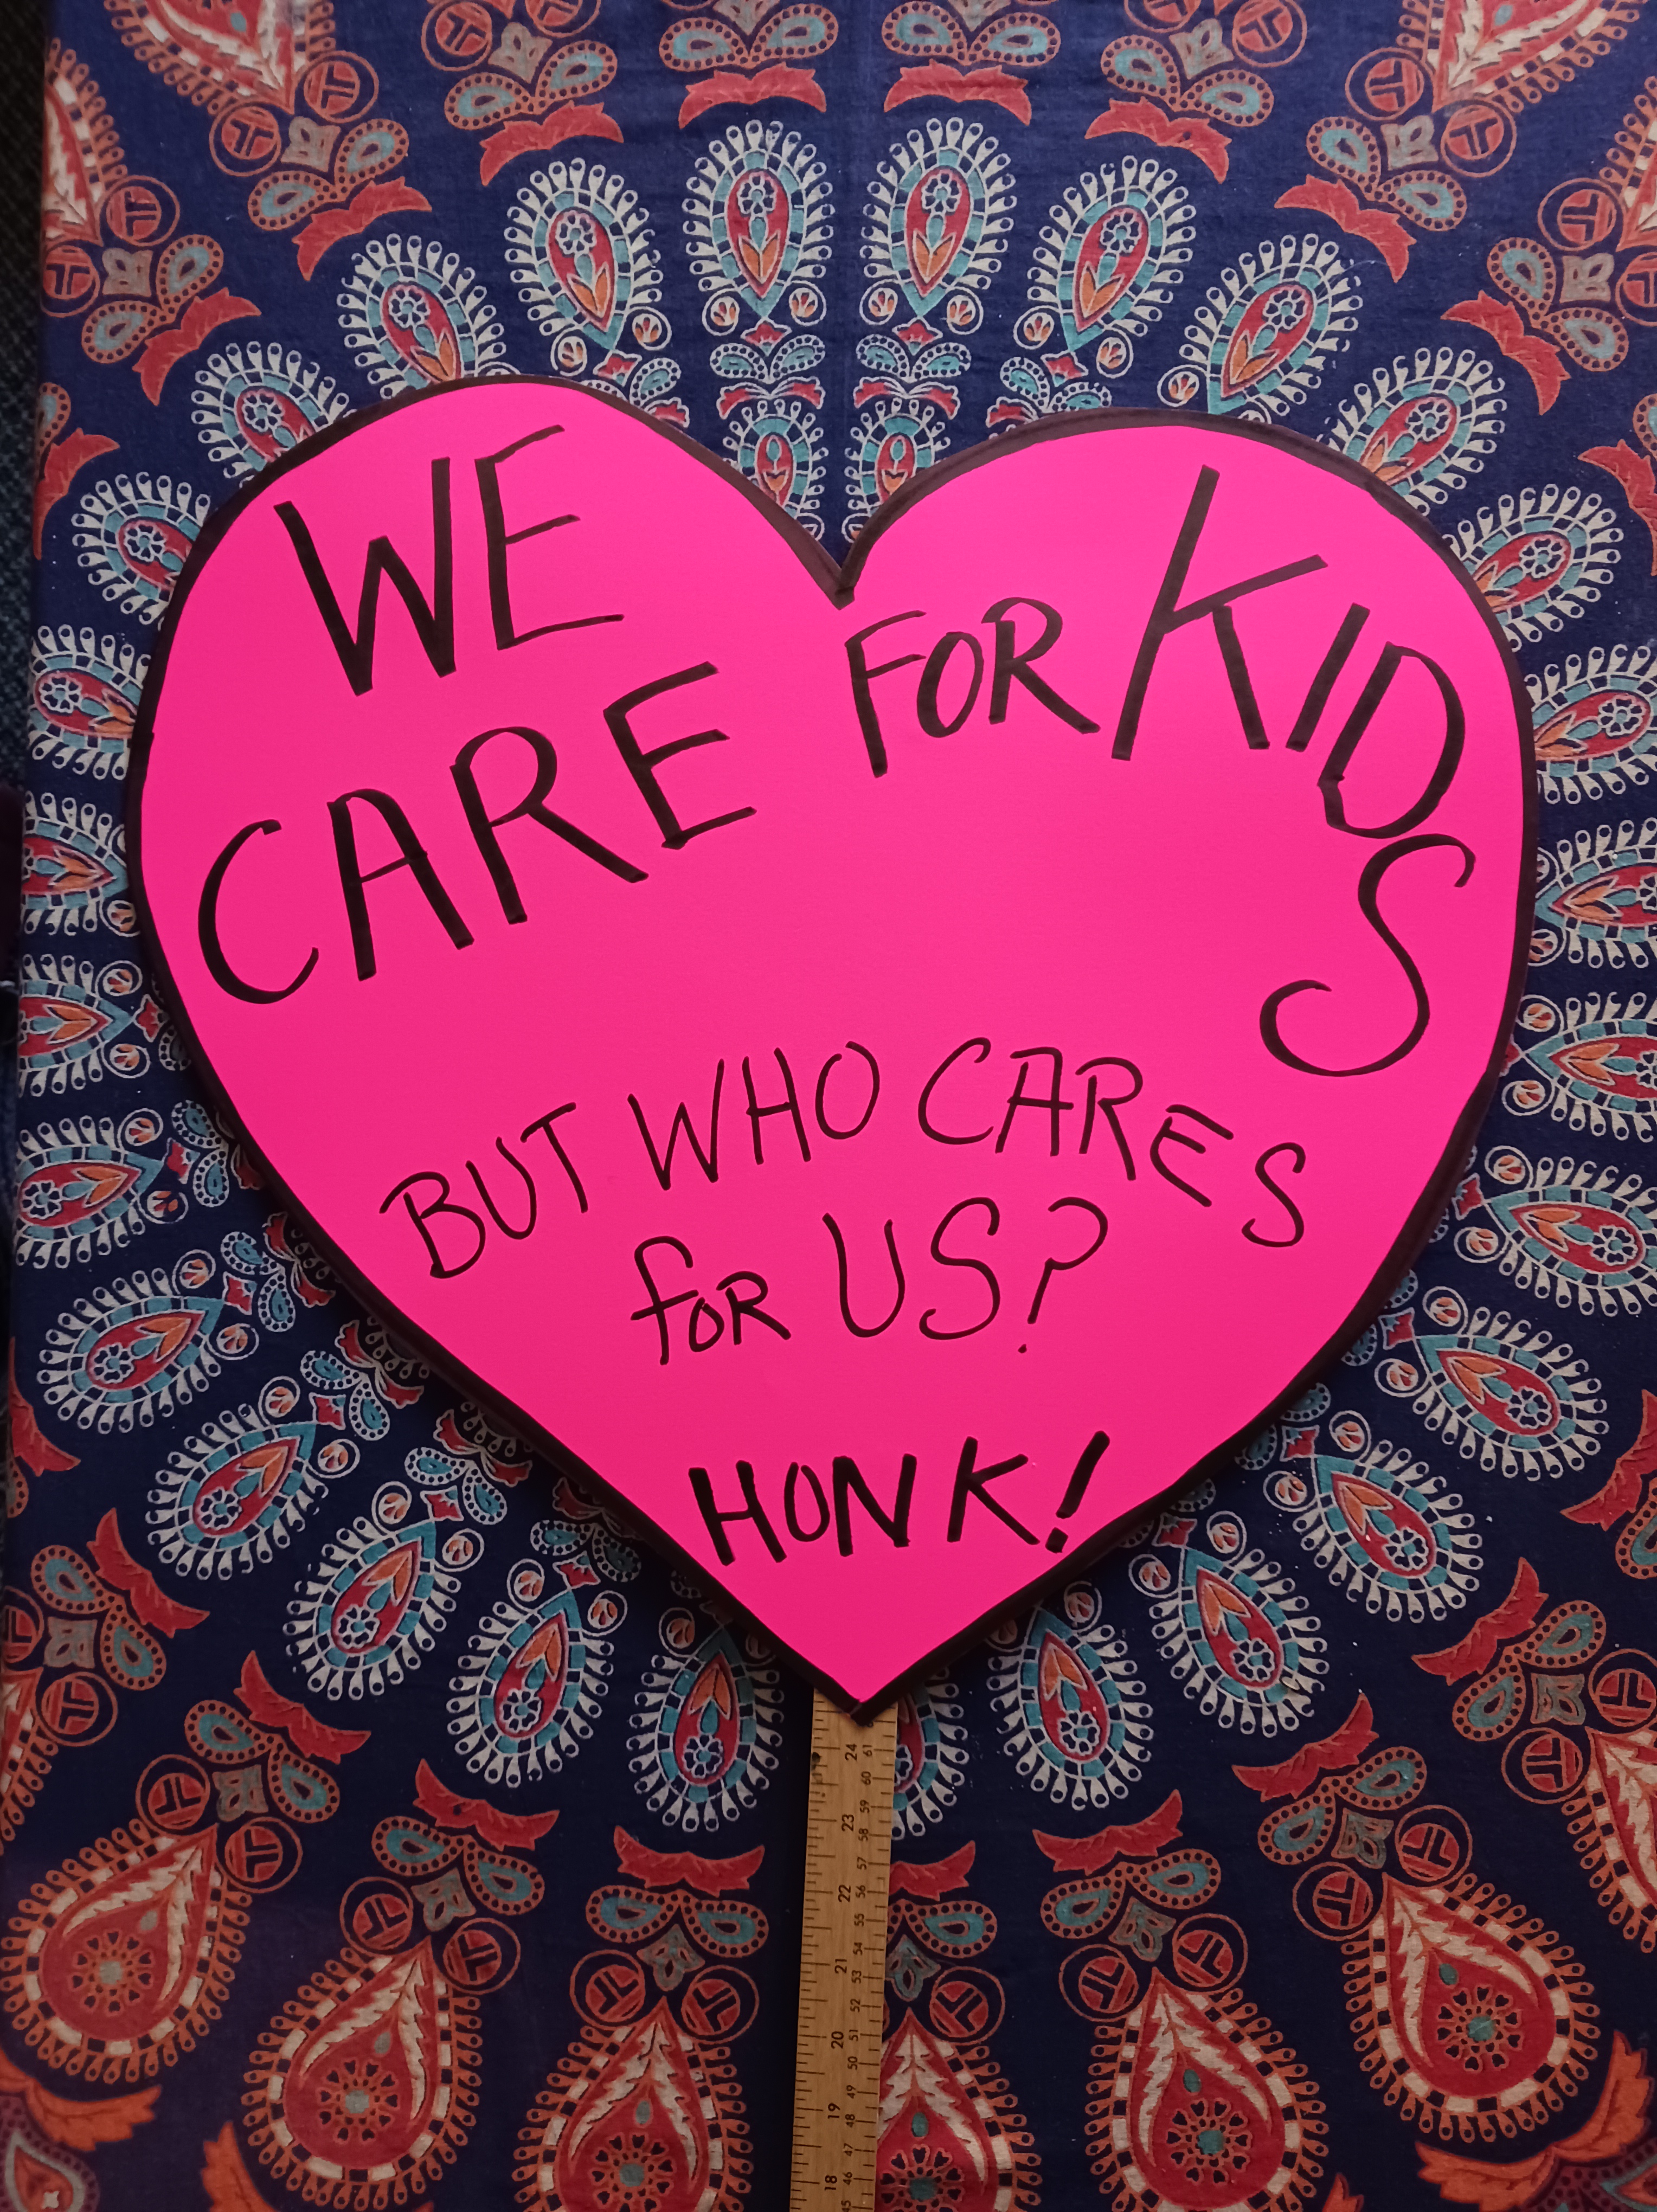 WE
CARE FOR KIDS
BUT WHO CARES
for US?
HONK!
24 61
60
23 59
58
57
22 56
55
54
21 53
52
20 51
50
49
19 48
47
18 46
45